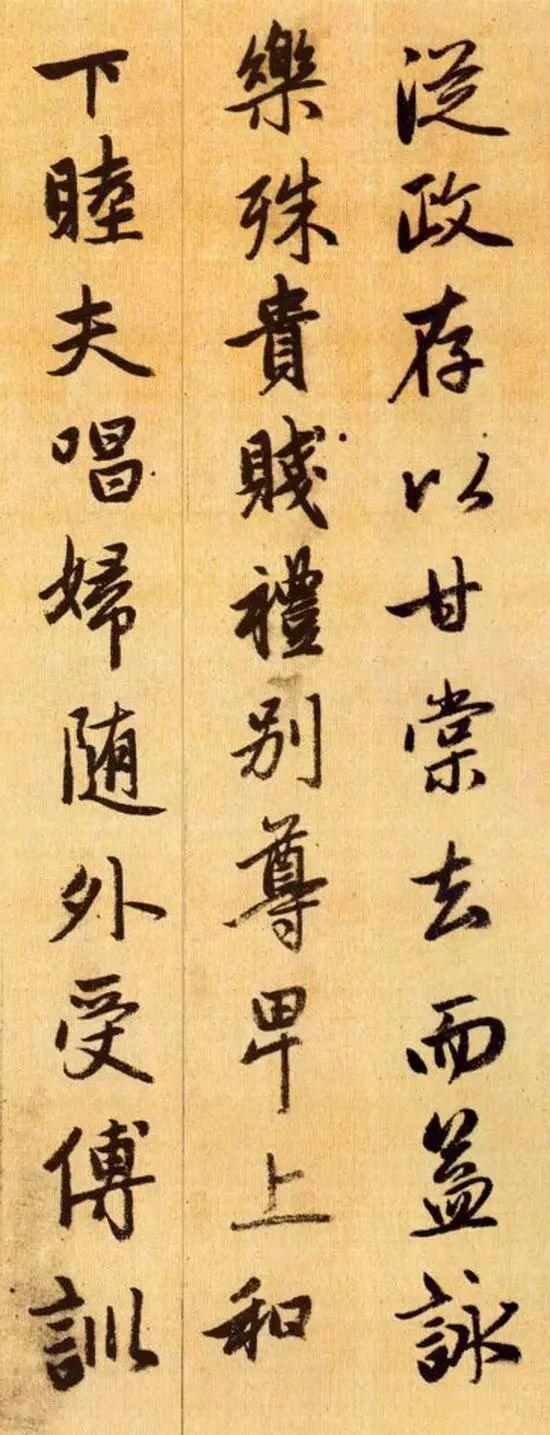 從政存以甘棠去而益詠
樂殊貴賤禮別尊卑上和
下睦夫唱婦随外受傅訓